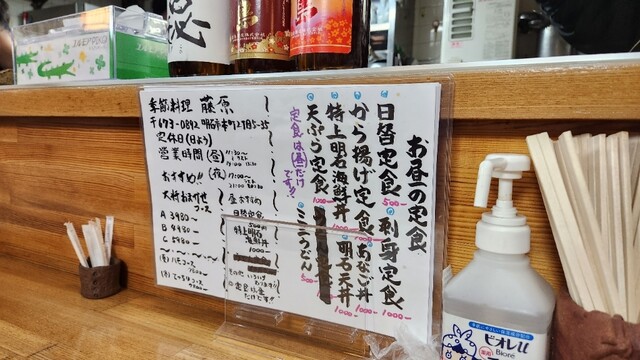 お昼の定食
日替定食 500-
刺身定食 1000-
から揚げ定食
あなご丼 1000-
特上明石海鮮丼
明石天丼 1000-
天ぷら定食
ミニうどん
定食は(昼)だけです!!
季節料理 藤原
〒673-0892 明石市本町2丁目5-35
定休日(日よう)
営業時間(昼)11:30〜
(夜)17:00〜
おすすめ!!
大将おまかせコース
A 3980〜
B 4980〜
C 5980〜
昼おすすめ
日替定食
500円
特上明石海鮮丼
1000円
ビオレu
Bioré